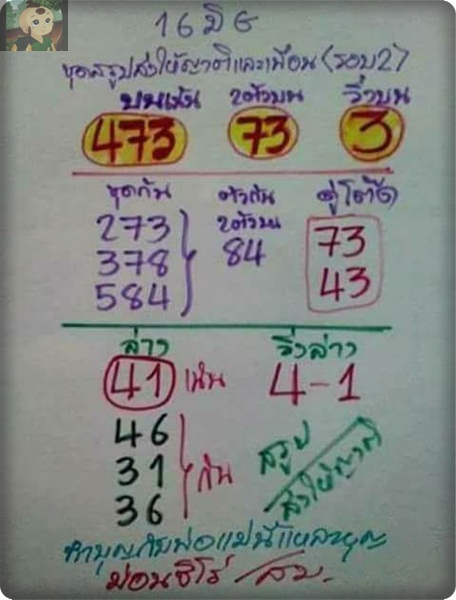 16 มิย
ชุดสรุปส่งให้ญาติและเพื่อน (รอบ2)
บนเน้น 2ตัวบน วิ่งบน
473 73 3
ชุดกัน ตัวกัน 2ตัวบน คู่โต๊ด
273 84 73
378 43
584
ล่าง วิ่งล่าง
41 เน้น 4-1
46
31 กัน
36
สรุป
ส่งให้ญาติ
ทำบุญกับพ่อแม่นี่แหละบุญ